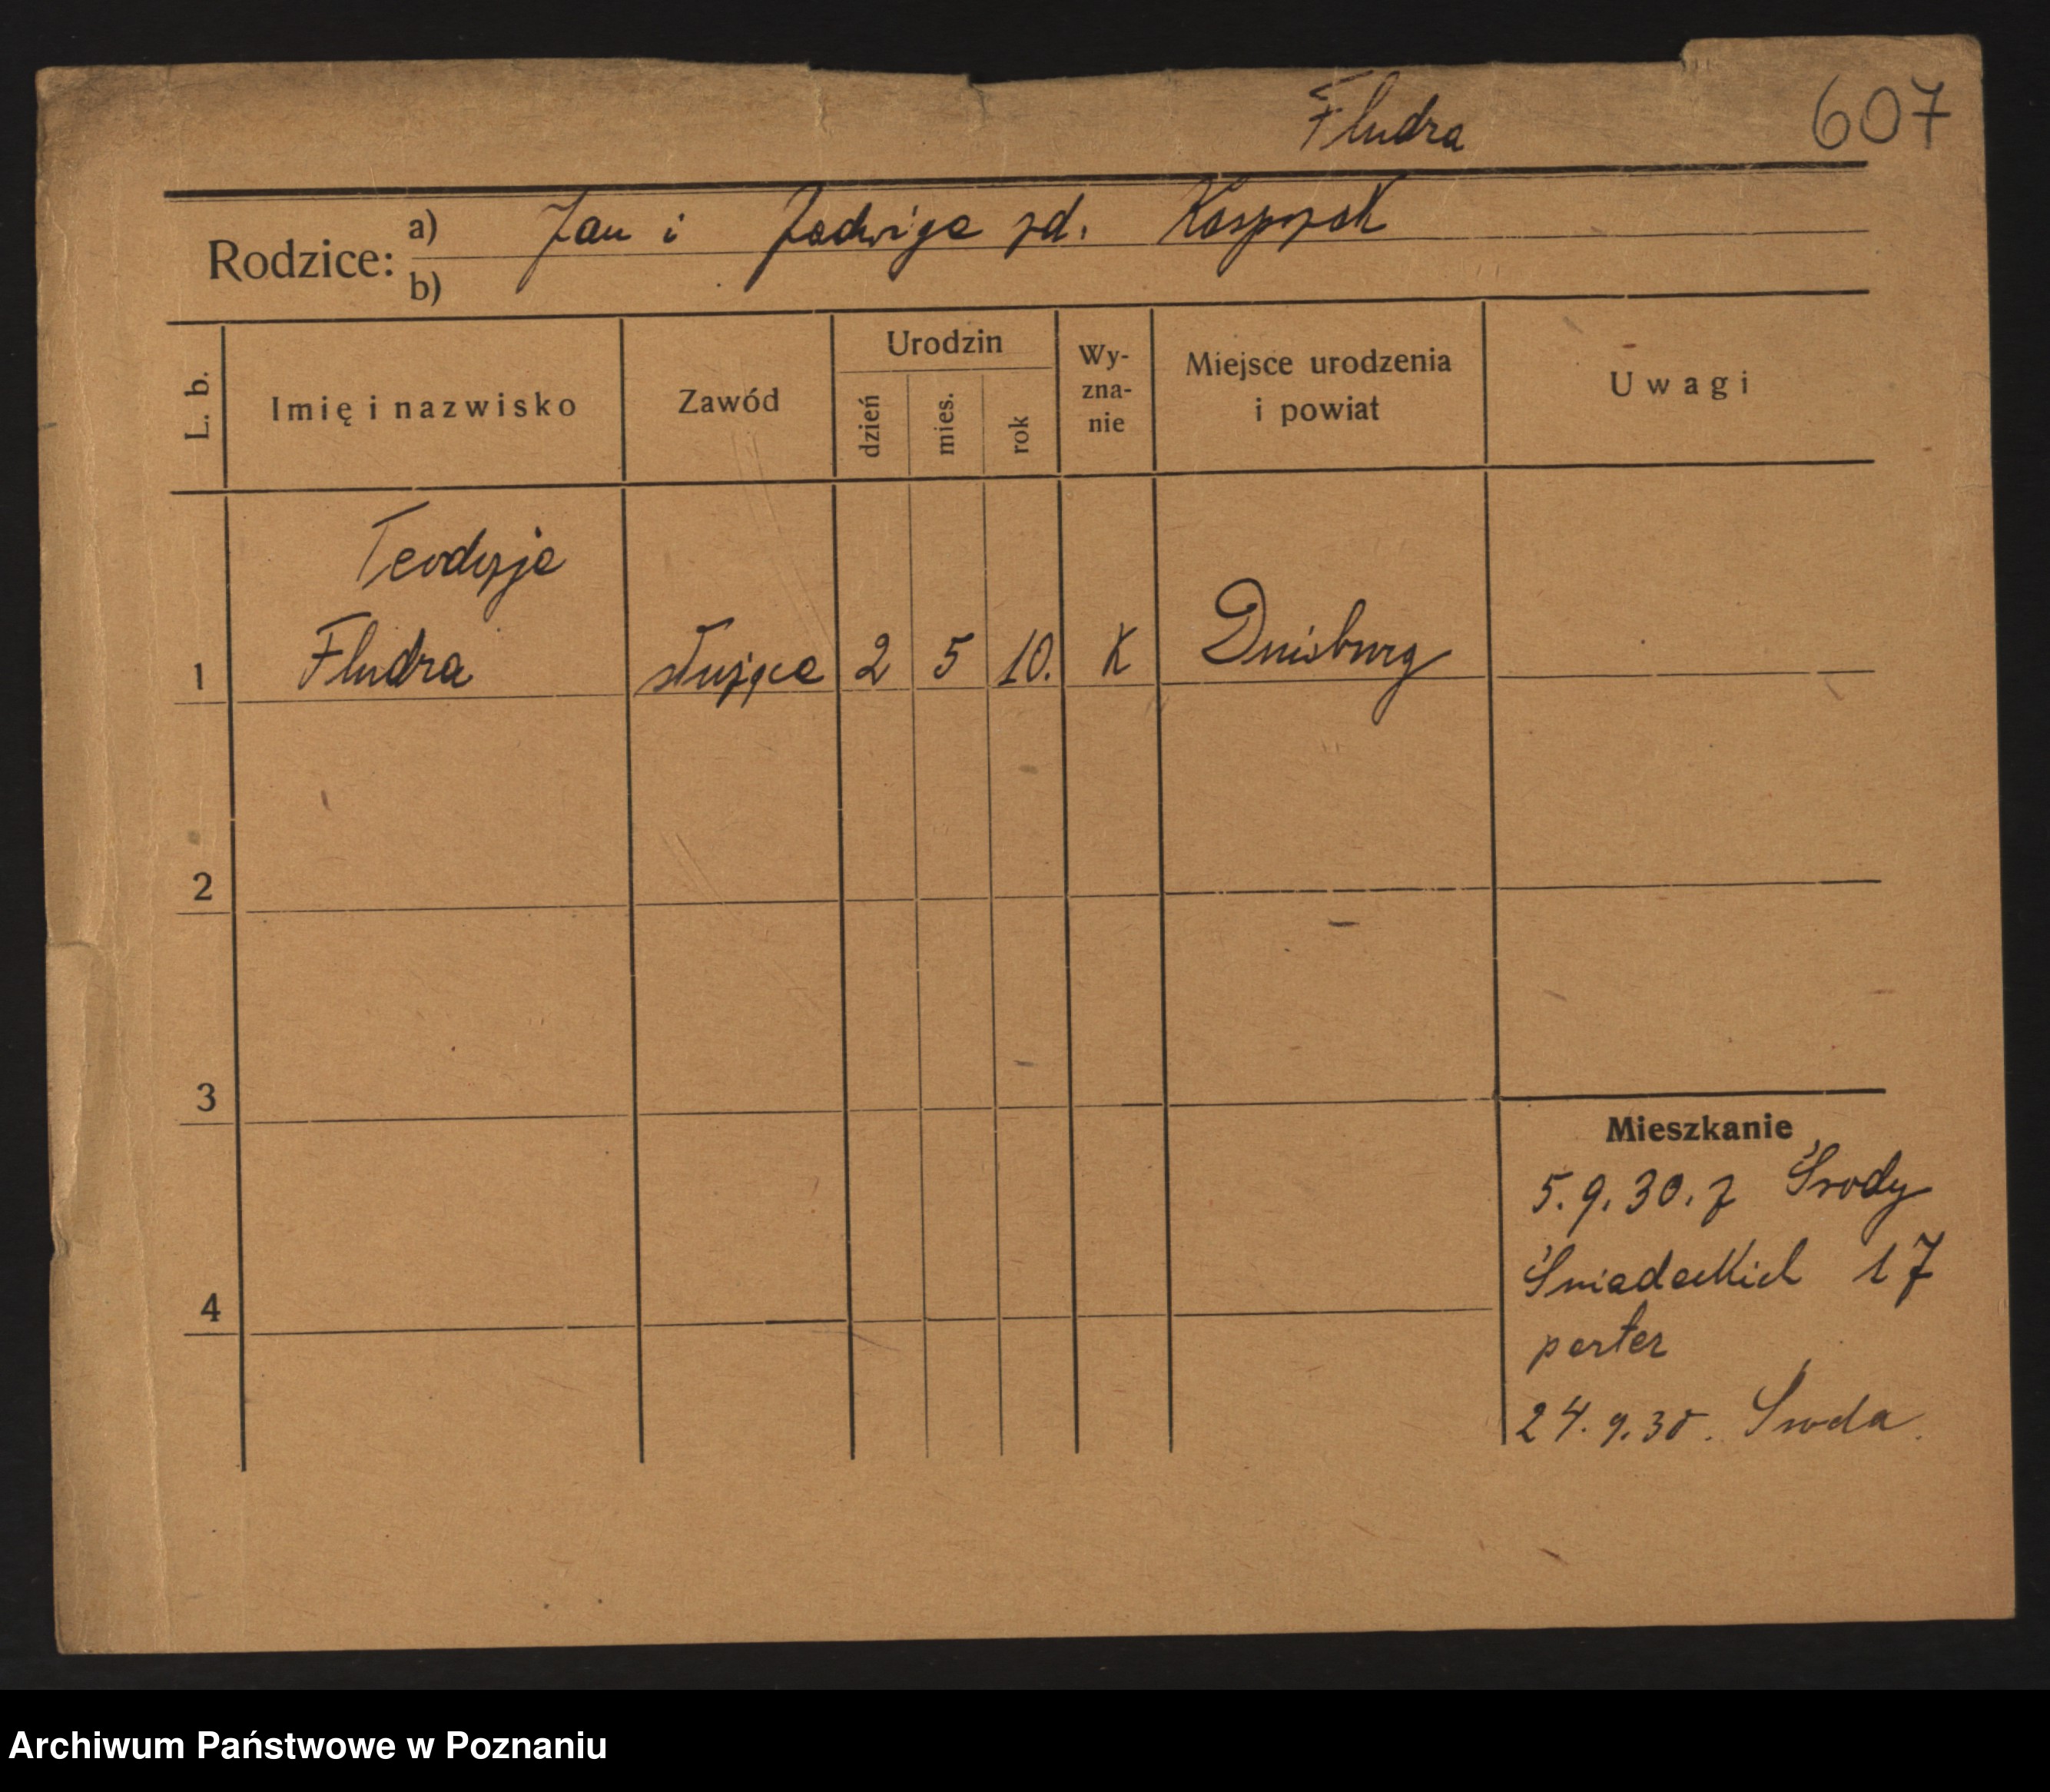 Fludra
607
Rodzice: a) Jan i Jadwiga zd. Kasprzak
b)
L. b.
Imię i nazwisko
Zawód
Urodzin
dzień
mies.
rok
Wy-
zna-
nie
Miejsce urodzenia
i powiat
Uwagi
Teodozja
1 Fludra służąca 2 5 10. K Duisburg
2
3
4
Mieszkanie
5.9.30. z Środy
Śniadeckich 17
parter
24.9.30. Środa.
Archiwum Państwowe w Poznaniu